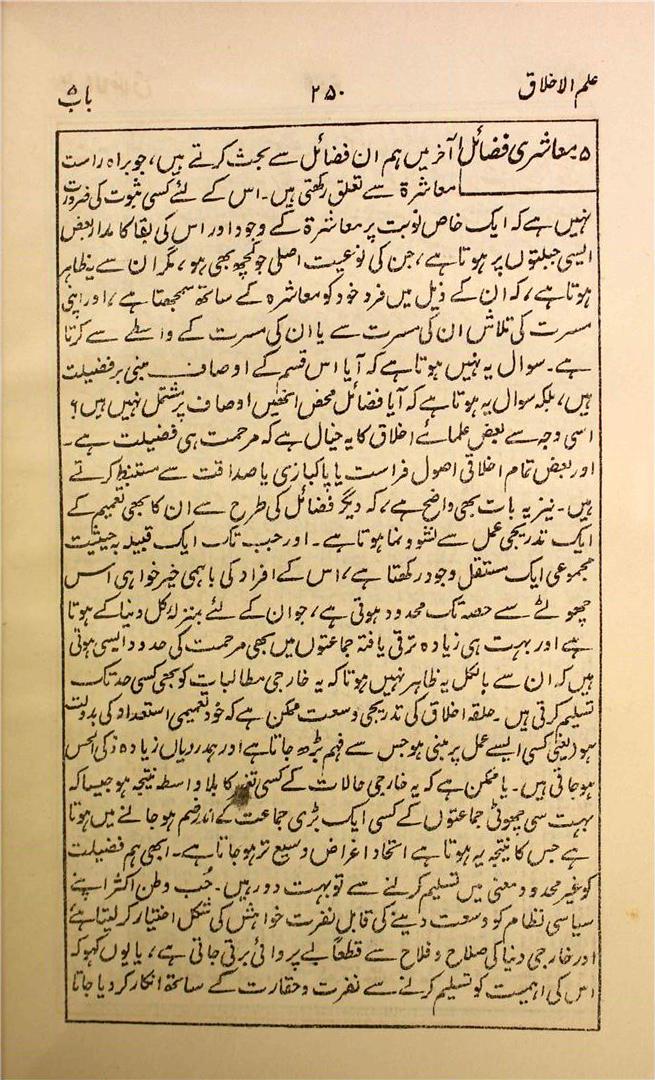 علم الاخلاق ۲۵۰ باب ۵
۵ معاشری فضائل آخر میں ہم ان فضائل سے بحث کرتے ہیں، جو براہ راست
معاشرۃ سے تعلق رکھتی ہیں۔ اس کے لئے کسی ثبوت کی ضرورت
نہیں ہے کہ ایک خاص نوبت پر معاشرۃ کے وجود اور اس کی بقا کا مدار بعض
ایسی جبلتوں پر ہوتا ہے، جن کی نوعیت اصلی جو کچھ بھی ہو، مگر ان سے یہ ظاہر
ہوتا ہے، کہ ان کے ذیل میں فرد خود کو معاشرہ کے ساتھ سمجھتا ہے، اور اپنی
مسرت کی تلاش ان کی مسرت سے یا ان کی مسرت کے واسطے سے کرتا
ہے۔ سوال یہ نہیں ہوتا ہے کہ آیا اس قسم کے اوصاف مبنی بر فضیلت
ہیں، بلکہ سوال یہ ہوتا ہے کہ آیا فضائل محض انھیں اوصاف پر مشتمل نہیں ہیں؟
اسی وجہ سے بعض علمائے اخلاق کا یہ خیال ہے کہ مرحمت ہی فضیلت ہے۔
اور بعض تمام اخلاقی اصول فراست یا پاکبازی یا صداقت سے مستنبط کرتے
ہیں۔ نیز یہ بات بھی واضح ہے، کہ دیگر فضائل کی طرح سے ان کا بھی تعمیم کے
ایک تدریجی عمل سے نشوونما ہوتا ہے۔ اور جب تک ایک قبیلہ بہ حیثیت
مجموعی ایک مستقل وجود رکھتا ہے، اس کے افراد کی باہمی خیر خواہی اس
چھوٹے سے حصہ تک محدود ہوتی ہے، جو ان کے لئے بمنزلہ کل دنیا کے ہوتا
ہے اور بہت ہی زیادہ ترقی یافتہ جماعتوں میں بھی مرحمت کی حدود ایسی ہوتی
ہیں کہ ان سے بالکل یہ ظاہر نہیں ہوتا کہ یہ خارجی مطالبات کو بھی کسی حد تک
تسلیم کرتی ہیں۔ حلقۂ اخلاق کی تدریجی وسعت ممکن ہے کہ خود تعمیمی استعداد کی بدولت
ہو (یعنی کسی ایسے عمل پر مبنی ہو جس سے فہم بڑھ جاتا ہے اور ہمدردیاں زیادہ ذکی الحس
ہو جاتی ہیں۔ یا ممکن ہے کہ یہ خارجی حالات کے کسی تغیر کا بلا واسطہ نتیجہ ہو جیسا کہ
بہت سی چھوٹی جماعتوں کے کسی ایک بڑی جماعت کے اندر ضم ہو جانے میں ہوتا
ہے جس کا نتیجہ یہ ہوتا ہے اتحاد اغراض وسیع تر ہو جاتا ہے۔ ابھی ہم فضیلت
کو غیر محدود معنی میں تسلیم کرنے سے تو بہت دور ہیں۔ حُب وطن اکثر اپنے
سیاسی نظام کو وسعت دینے کی قابل نفرت خواہش کی شکل اختیار کر لیتا ہے
اور خارجی دنیا کی صلاح و فلاح سے قطعاً بے پروائی برتی جاتی ہے، یا یوں کہو کہ
اس کی اہمیت کو تسلیم کرنے سے نفرت و حقارت کے ساتھ انکار کر دیا جاتا